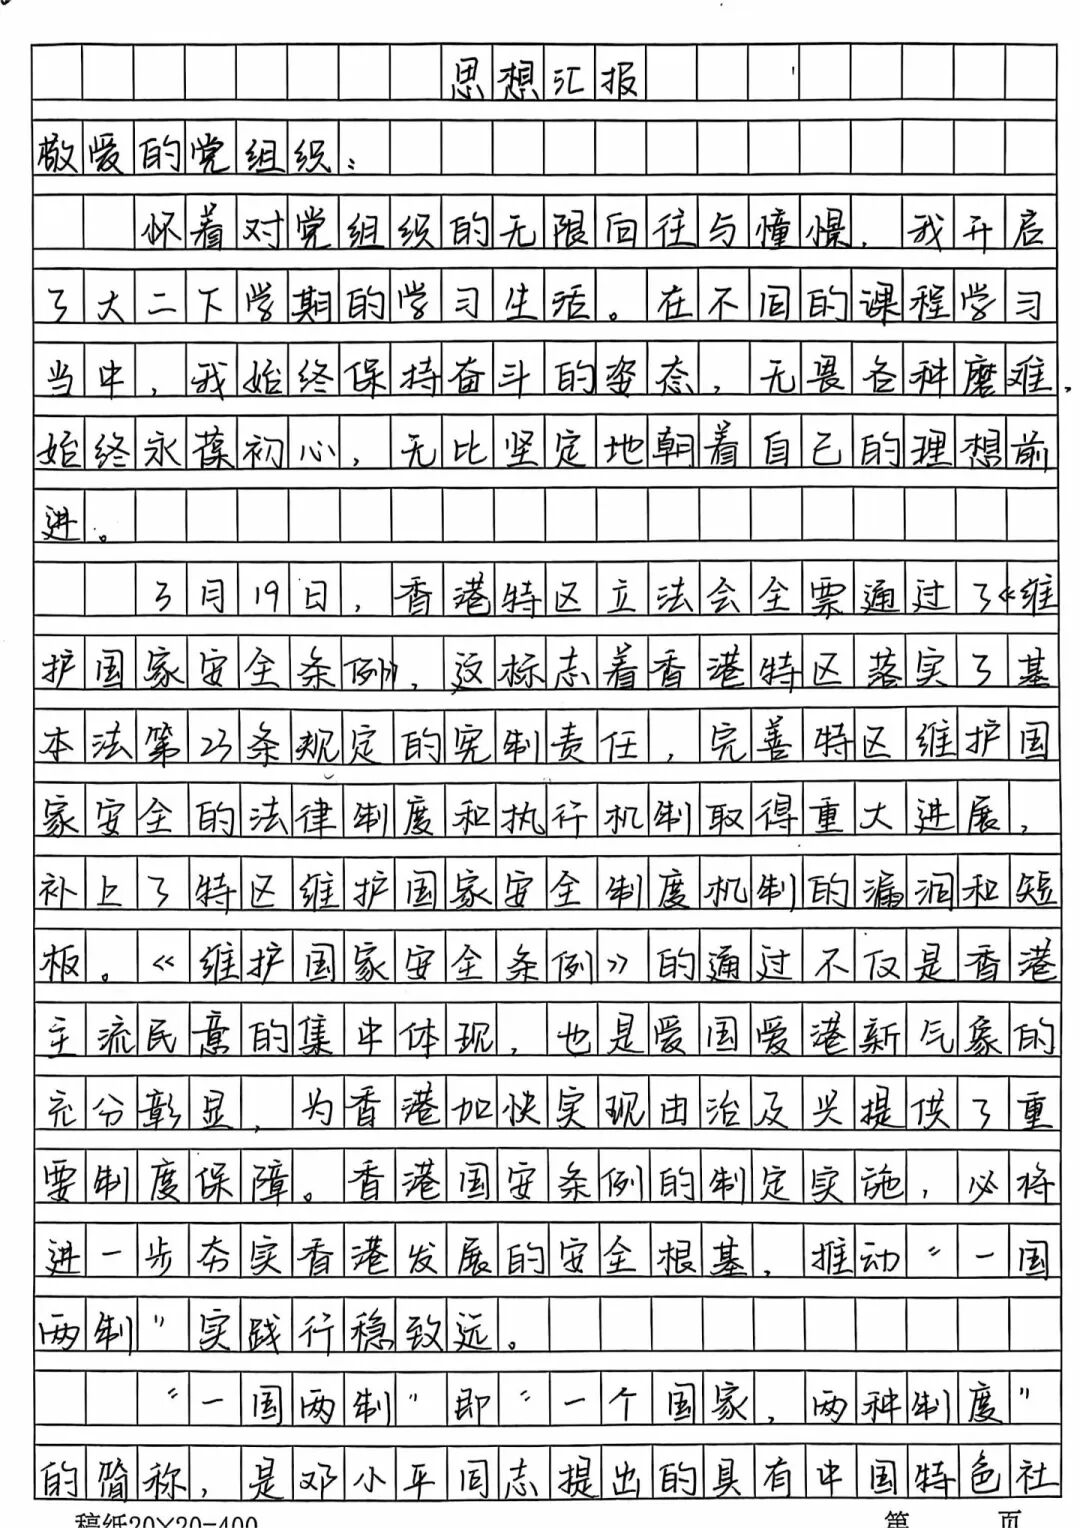 思想汇报
敬爱的党组织：
怀着对党组织的无限向往与憧憬，我开启
了大二下学期的学习生活。在不同的课程学习
当中，我始终保持奋斗的姿态，无畏各种磨难，
始终永葆初心，无比坚定地朝着自己的理想前
进。
3月19日，香港特区立法会全票通过了《维
护国家安全条例》，这标志着香港特区落实了基
本法第23条规定的宪制责任，完善特区维护国
家安全的法律制度和执行机制取得重大进展，
补上了特区维护国家安全制度机制的漏洞和短
板。《维护国家安全条例》的通过不仅是香港
主流民意的集中体现，也是爱国爱港新气象的
充分彰显，为香港加快实现由治及兴提供了重
要制度保障。香港国安条例的制定实施，必将
进一步夯实香港发展的安全根基，推动“一国
两制”实践行稳致远。
“一国两制”即“一个国家，两种制度”
的简称，是邓小平同志提出的具有中国特色社
稿纸20×20=400 第 页